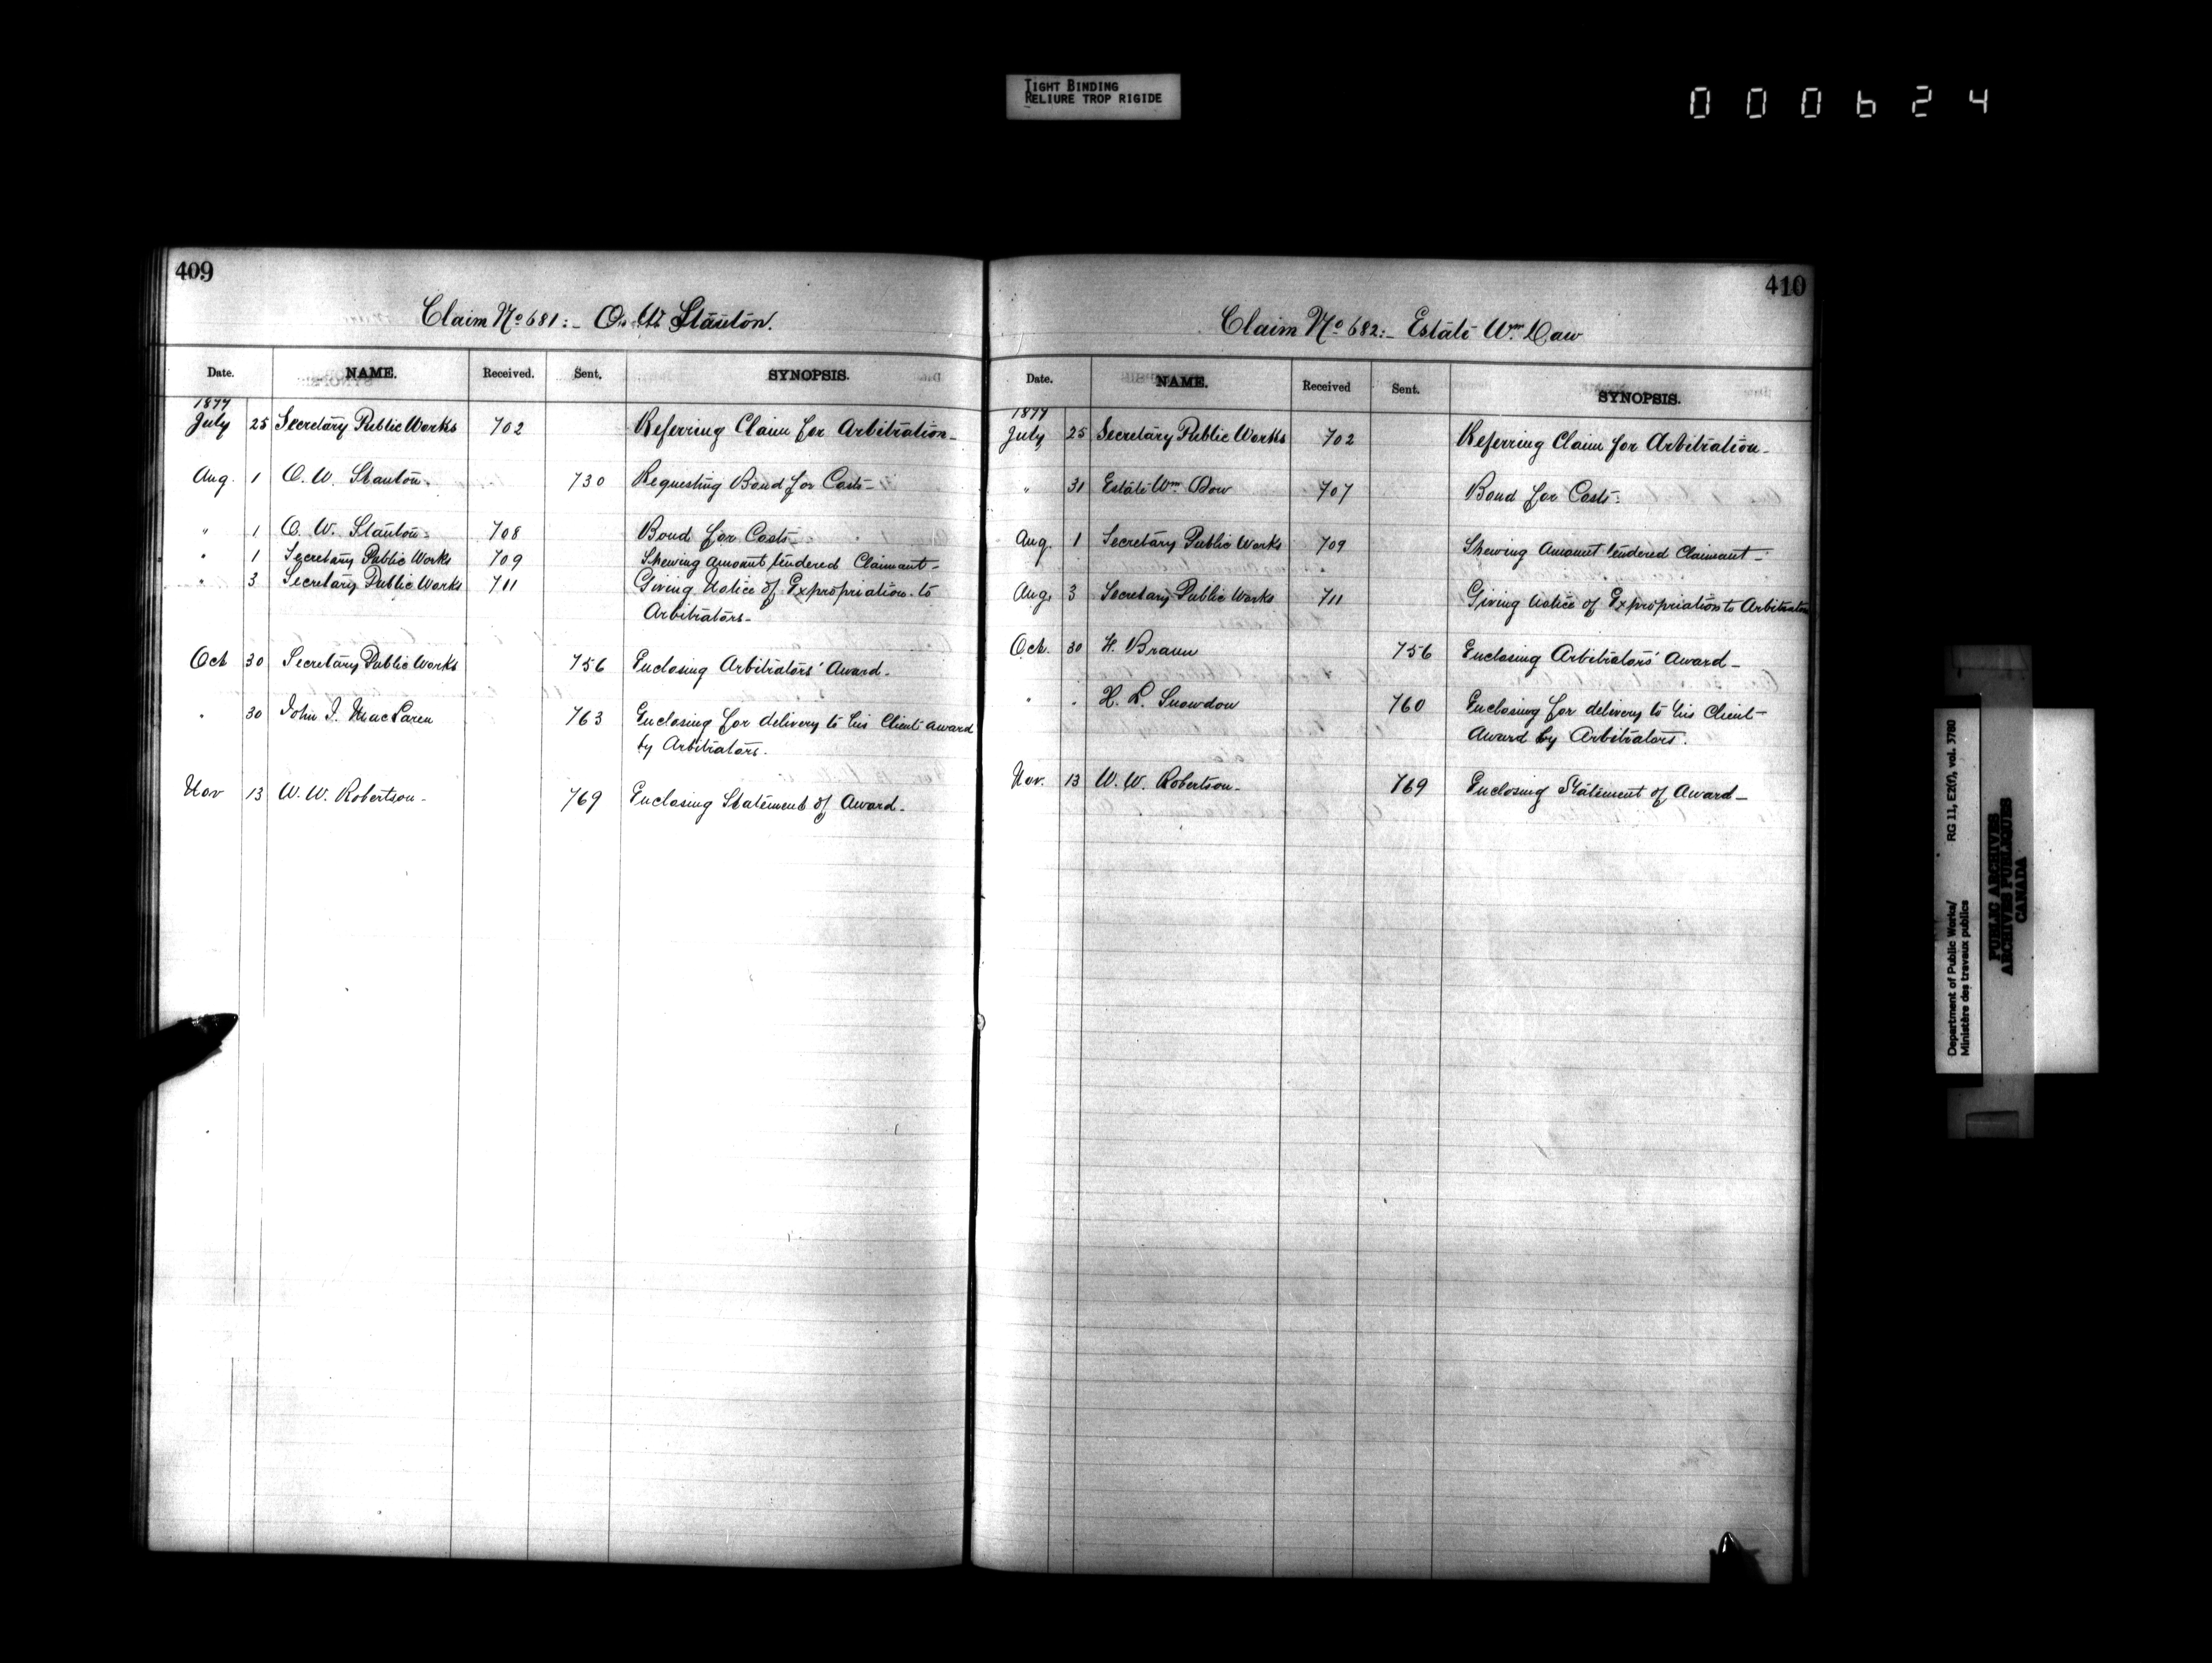 TIGHT BINDING
RELIURE TROP RIGIDE
000624
409
Claim No 681:- O. W. Stanton.
Date. NAME. Received. Sent. SYNOPSIS.
1877
July 25 Secretary Public Works 702 Referring Claim for Arbitration-
Aug. 1 O. W. Stanton. 730 Requesting Bond for Costs-
" 1 O. W. Stanton- 708 Bond for Costs-
" 1 Secretary Public Works 709 Shewing Amount tendered Claimant-
" 3 Secretary Public Works 711 Giving Notice of Expropriation to
Arbitrators-
Oct 30 Secretary Public Works 756 Enclosing Arbitrators' Award-
" 30 John J. MacLaren 763 Enclosing for delivery to his Client award
by Arbitrators.
Nov 13 W. W. Robertson- 769 Enclosing Statement of Award-
410
Claim No 682:- Estate Wm. Daw
Date. NAME. Received Sent. SYNOPSIS.
1877
July 25 Secretary Public Works 702 Referring Claim for Arbitration-
" 31 Estate Wm. Dow 707 Bond for Costs-
Aug. 1 Secretary Public Works 709 Shewing Amount tendered Claimant-
Aug. 3 Secretary Public Works 711 Giving Notice of Expropriation to Arbitrators
Oct. 30 H. Braun 756 Enclosing Arbitrators' Award-
" " H. L. Snowdon 760 Enclosing for delivery to his Client-
Award by Arbitrators.
Nov. 13 W. W. Robertson- 769 Enclosing Statement of Award-
Department of Public Works/ RG 11, E2(f), vol. 3780
Ministère des travaux publics
PUBLIC ARCHIVES
ARCHIVES PUBLIQUES
CANADA